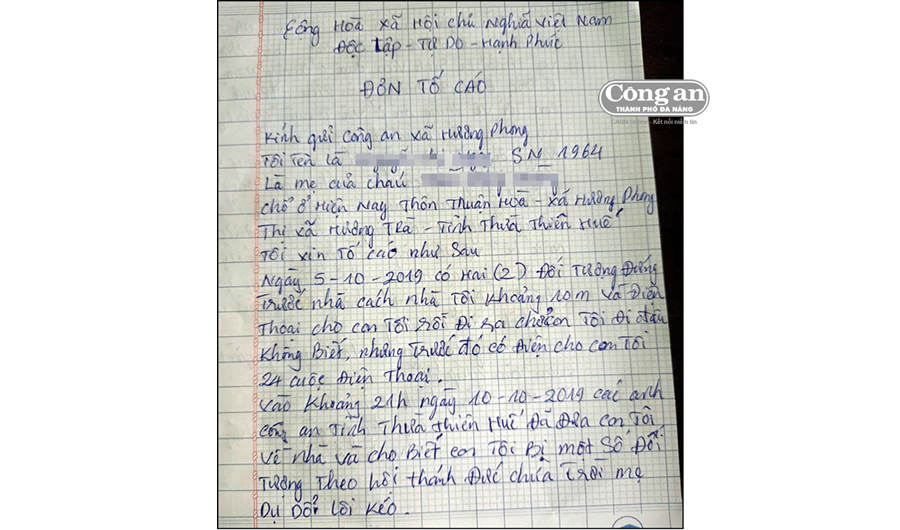 Cộng Hoà xã Hội chủ Nghĩa Việt Nam
Độc Lập - Tự Do - Hạnh Phúc
ĐƠN TỐ CÁO
Công an
THÀNH PHỐ ĐÀ NẴNG
Kết nối niềm tin
Kính gửi công an xã Hương Phong
Tôi Tên là SN 1964
Là mẹ của cháu
chổ ở Hiện Nay Thôn Thuận Hoà - xã Hương Phong
Thị xã Hương Trà - Tỉnh Thừa Thiên Huế
Tôi xin Tố cáo như Sau
Ngày 5-10-2019 có Hai (2) Đối Tượng Đứng
Trước nhà cách nhà Tôi Khoảng 10m và Điện
Thoại cho con Tôi rồi Đi ra chở con Tôi Đi đâu
Không Biết, nhưng Trước đó có Điện cho con Tôi
24 cuộc Điện Thoại.
Vào Khoảng 21h ngày 10-10-2019 các anh
công an Tỉnh Thừa Thiên Huế Đã Đưa con Tôi
về nhà và cho Biết con Tôi Bị một Số Đối
Tượng Theo hội thánh Đức chúa Trời mẹ
Dụ Dổ Lôi Kéo.